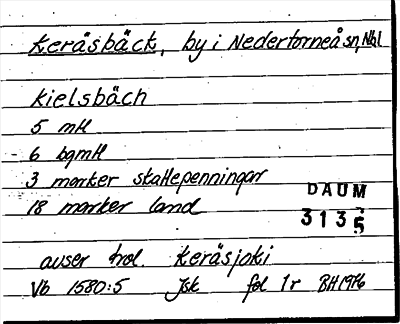 Keräsbäck, by i Nedertorneå sn, Nbl
Kielsbäch
5 mtl
6 bgmtl
3 marker skattepenningar
18 marker land
DAUM
3135
avser trol. Keräsjoki
Vb 1580:5 Jsk fol 1r BH1976